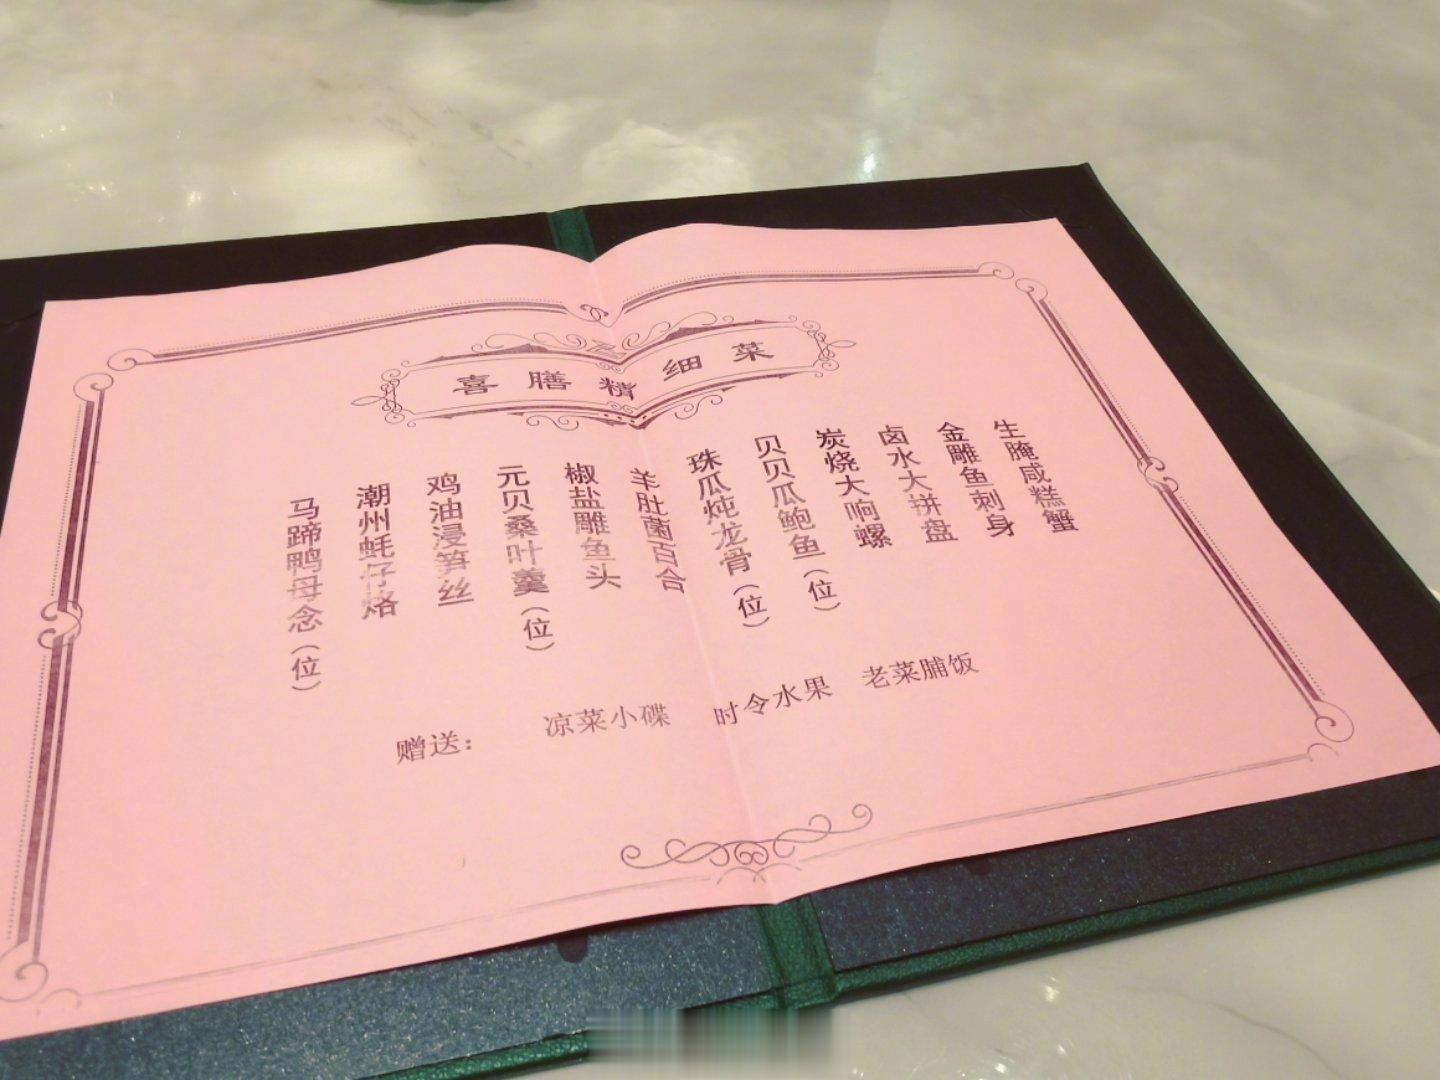 喜膳精细菜
生腌咸糕蟹
金雕鱼刺身
卤水大拼盘
炭烧大响螺
贝贝瓜鲍鱼（位）
珠瓜炖龙骨（位）
羊肚菌百合
椒盐雕鱼头
元贝桑叶羹（位）
鸡油浸笋丝
潮州蚝仔烙
马蹄鸭母念（位）
赠送： 凉菜小碟 时令水果 老菜脯饭